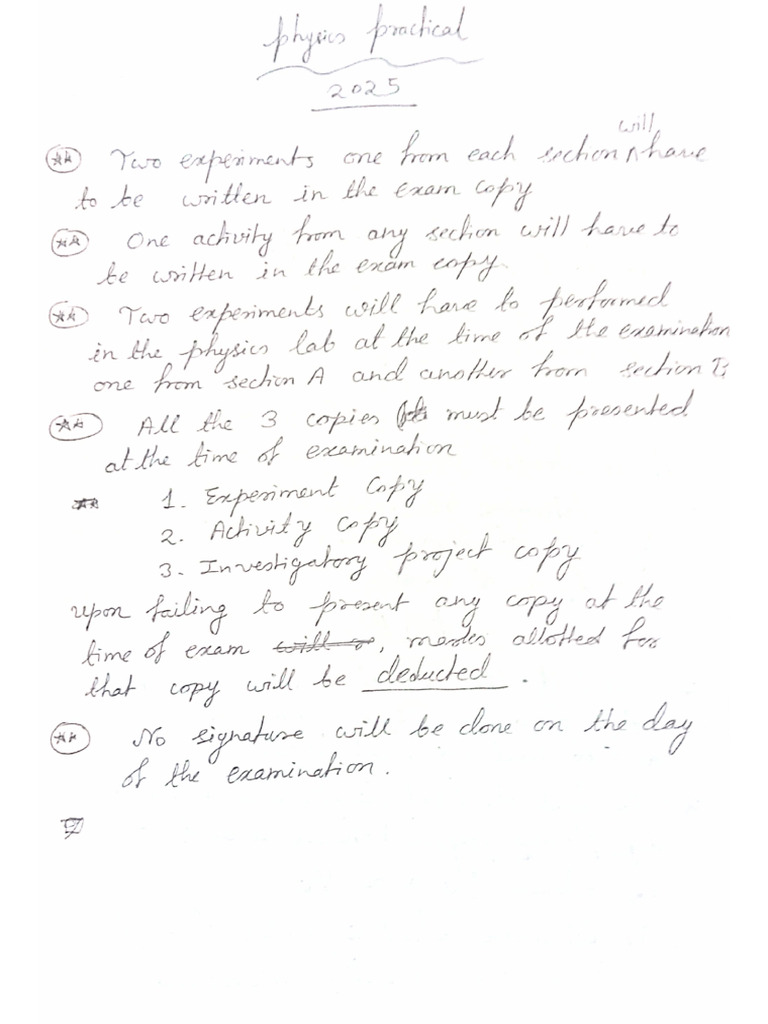 Physics practical
2025
** Two experiments one from each section will have
to be written in the exam copy
** One activity from any section will have to
be written in the exam copy.
** Two experiments will have to performed
in the physics lab at the time of the examination
one from section A and another from section B
** All the 3 copies must be presented
at the time of examination
** 1. Experiment Copy
2. Activity Copy
3. Investigatory project copy
upon failing to present any copy at the
time of exam will, marks allotted for
that copy will be deducted.
** No signature will be done on the day
of the examination.